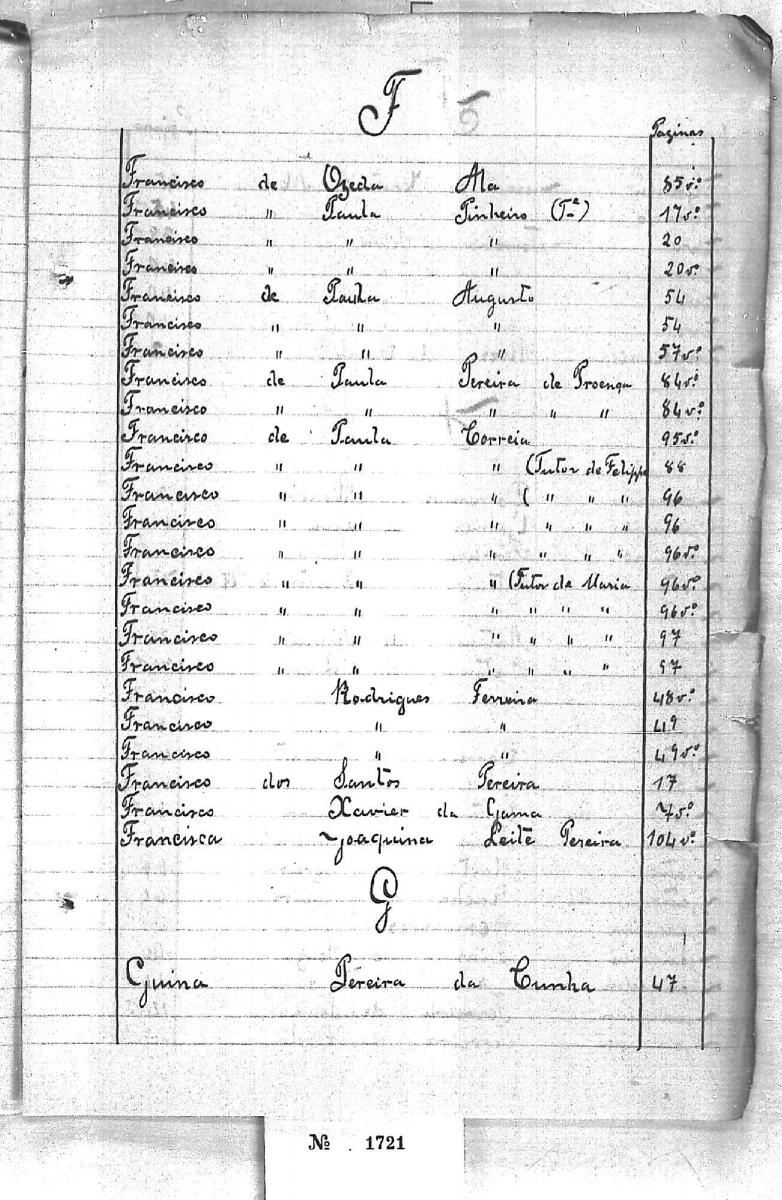 F 5
Paginas
Francisco de Ozeda Ala 85v.º
Francisco " Paula Pinheiro (Tª) 17v.º
Francisco " " " 20
Francisco " " " 20v.º
Francisco de Paula Augusto 54
Francisco " " " 54
Francisco " " " 57v.º
Francisco de Paula Pereira de Proença 84v.º
Francisco " " " " " 84v.º
Francisco de Paula Correia 95v.º
Francisco " " " (Tutor de Felippe 88
Francisco " " " ( " " " 96
Francisco " " " " " " 96
Francisco " " " " " " 96v.º
Francisco " " " (Tutor de Maria 96v.º
Francisco " " " " " " 96v.º
Francisco " " " " " " 97
Francisco " " " " " " 97
Francisco Rodrigues Ferreira 48v.º
Francisco " " 49
Francisco " " 49v.º
Francisco dos Santos Pereira 17
Francisco Xavier da Gama 7v.º
Francisca Joaquina Leite Pereira 104v.º
G
Guina Pereira da Cunha 47
№ . 1721